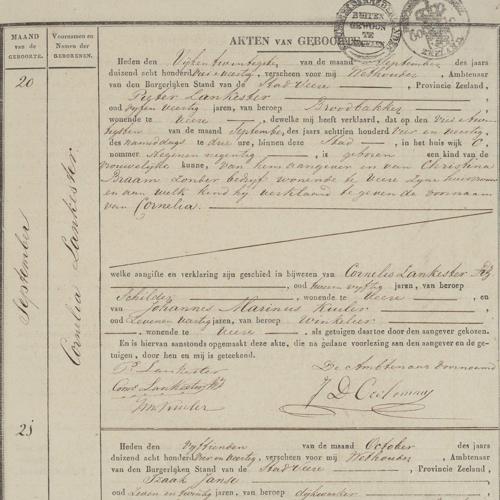 MAAND
van de
GEBOORTE.
Voornamen en
Namen der
GEBORENEN.
BUITEN
GEWOON
TE
ZEGELEN
ZEELAND
AKTEN VAN GEBOORTE
20
September
Cornelia Lankester
Heden den Vijfentwintigsten van de maand September des jaars
duizend acht honderd vier en veertig, verscheen voor mij Wethouder, Ambtenaar
van den Burgerlijken Stand van de Stad Veere, Provincie Zeeland,
Pieter Lankester
oud vijfen veertig jaren, van beroep Broodbakker
wonende te Veere, dewelke mij heeft verklaard, dat op den vier en twin-
tigsten van de maand September, des jaars achttien honderd vier en veertig,
des namiddags te drie ure, binnen deze Stad, in het wijk C,
nommer Negen en negentig is geboren een kind van de
vrouwelijke kunne, van hem aangever en van Christina
Braam zonder bedrijf wonende te Veere zijne huisvrouw
en aan welk kind hij verklaard te geven de voornaam
van Cornelia.
welke aangifte en verklaring zijn geschied in bijwezen van Cornelis Lankester
, oud twee en vijftig jaren, van beroep
Schilder, wonende te Veere, en
van Johannes Marinus Kuuler
oud zeven en veertig jaren, van beroep Winkelier
, wonende te Veere, als getuigen daartoe door den aangever gekozen.
En is hiervan aanstonds opgemaakt deze akte, die na gedane voorlezing aan den aangever en de ge-
tuigen, door hen en mij is geteekend.
P. Lankester
De Ambtenaar voornoemd
Corns Lankester
JM Kuuler
J D
21
Heden den Vijftienden van de maand October des jaars
duizend acht honderd Vier en Veertig, verscheen voor mij Wethouder, Ambtenaar
van den Burgerlijken Stand van de Stad Veere, Provincie Zeeland,
Izaak Janse
oud zeven en twintig jaren, van beroep dijkwerker